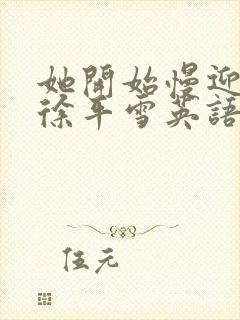 她開始慢迎
徐平雪英語
伍元